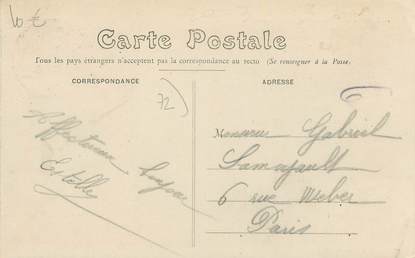 10 €
Carte Postale
Tous les pays étrangers n'acceptent pas la correspondance au recto (Se renseigner à la Poste)
CORRESPONDANCE
ADRESSE
72
Affectueux bonjour
Estelle
Monsieur Gabriel
6 rue Weber
Paris